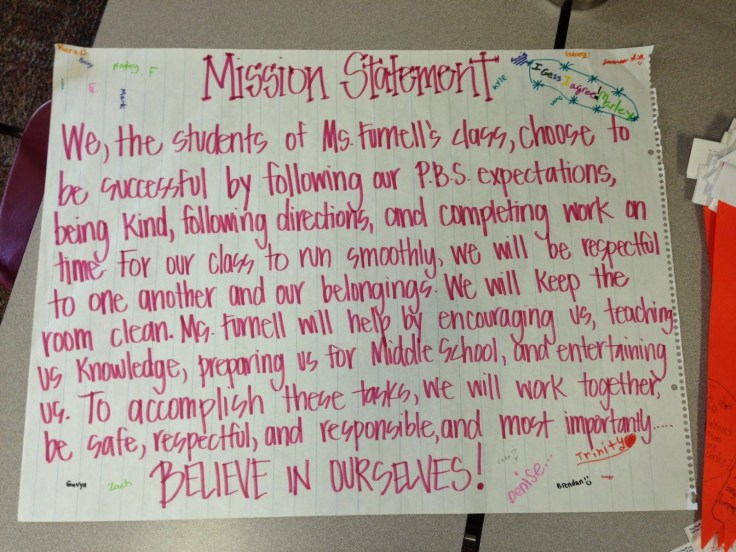 Mission Statement
I Gess I agree! Marley
Kyle
Hayley. F
Mark
We, the students of Ms. Furnell's class, choose to
be successful by following our P.B.S. expectations,
being kind, following directions, and completing work on
time. For our class to run smoothly, we will be respectful
to one another and our belongings. We will keep the
room clean. Ms. Furnell will help by encouraging us, teaching
us knowledge, preparing us for Middle School, and entertaining
us. To accomplish these tasks, we will work together,
be safe, respectful, and responsible, and most importantly.....
BELIEVE IN OURSELVES!
Trinity
Denise...
Brendan
Zach